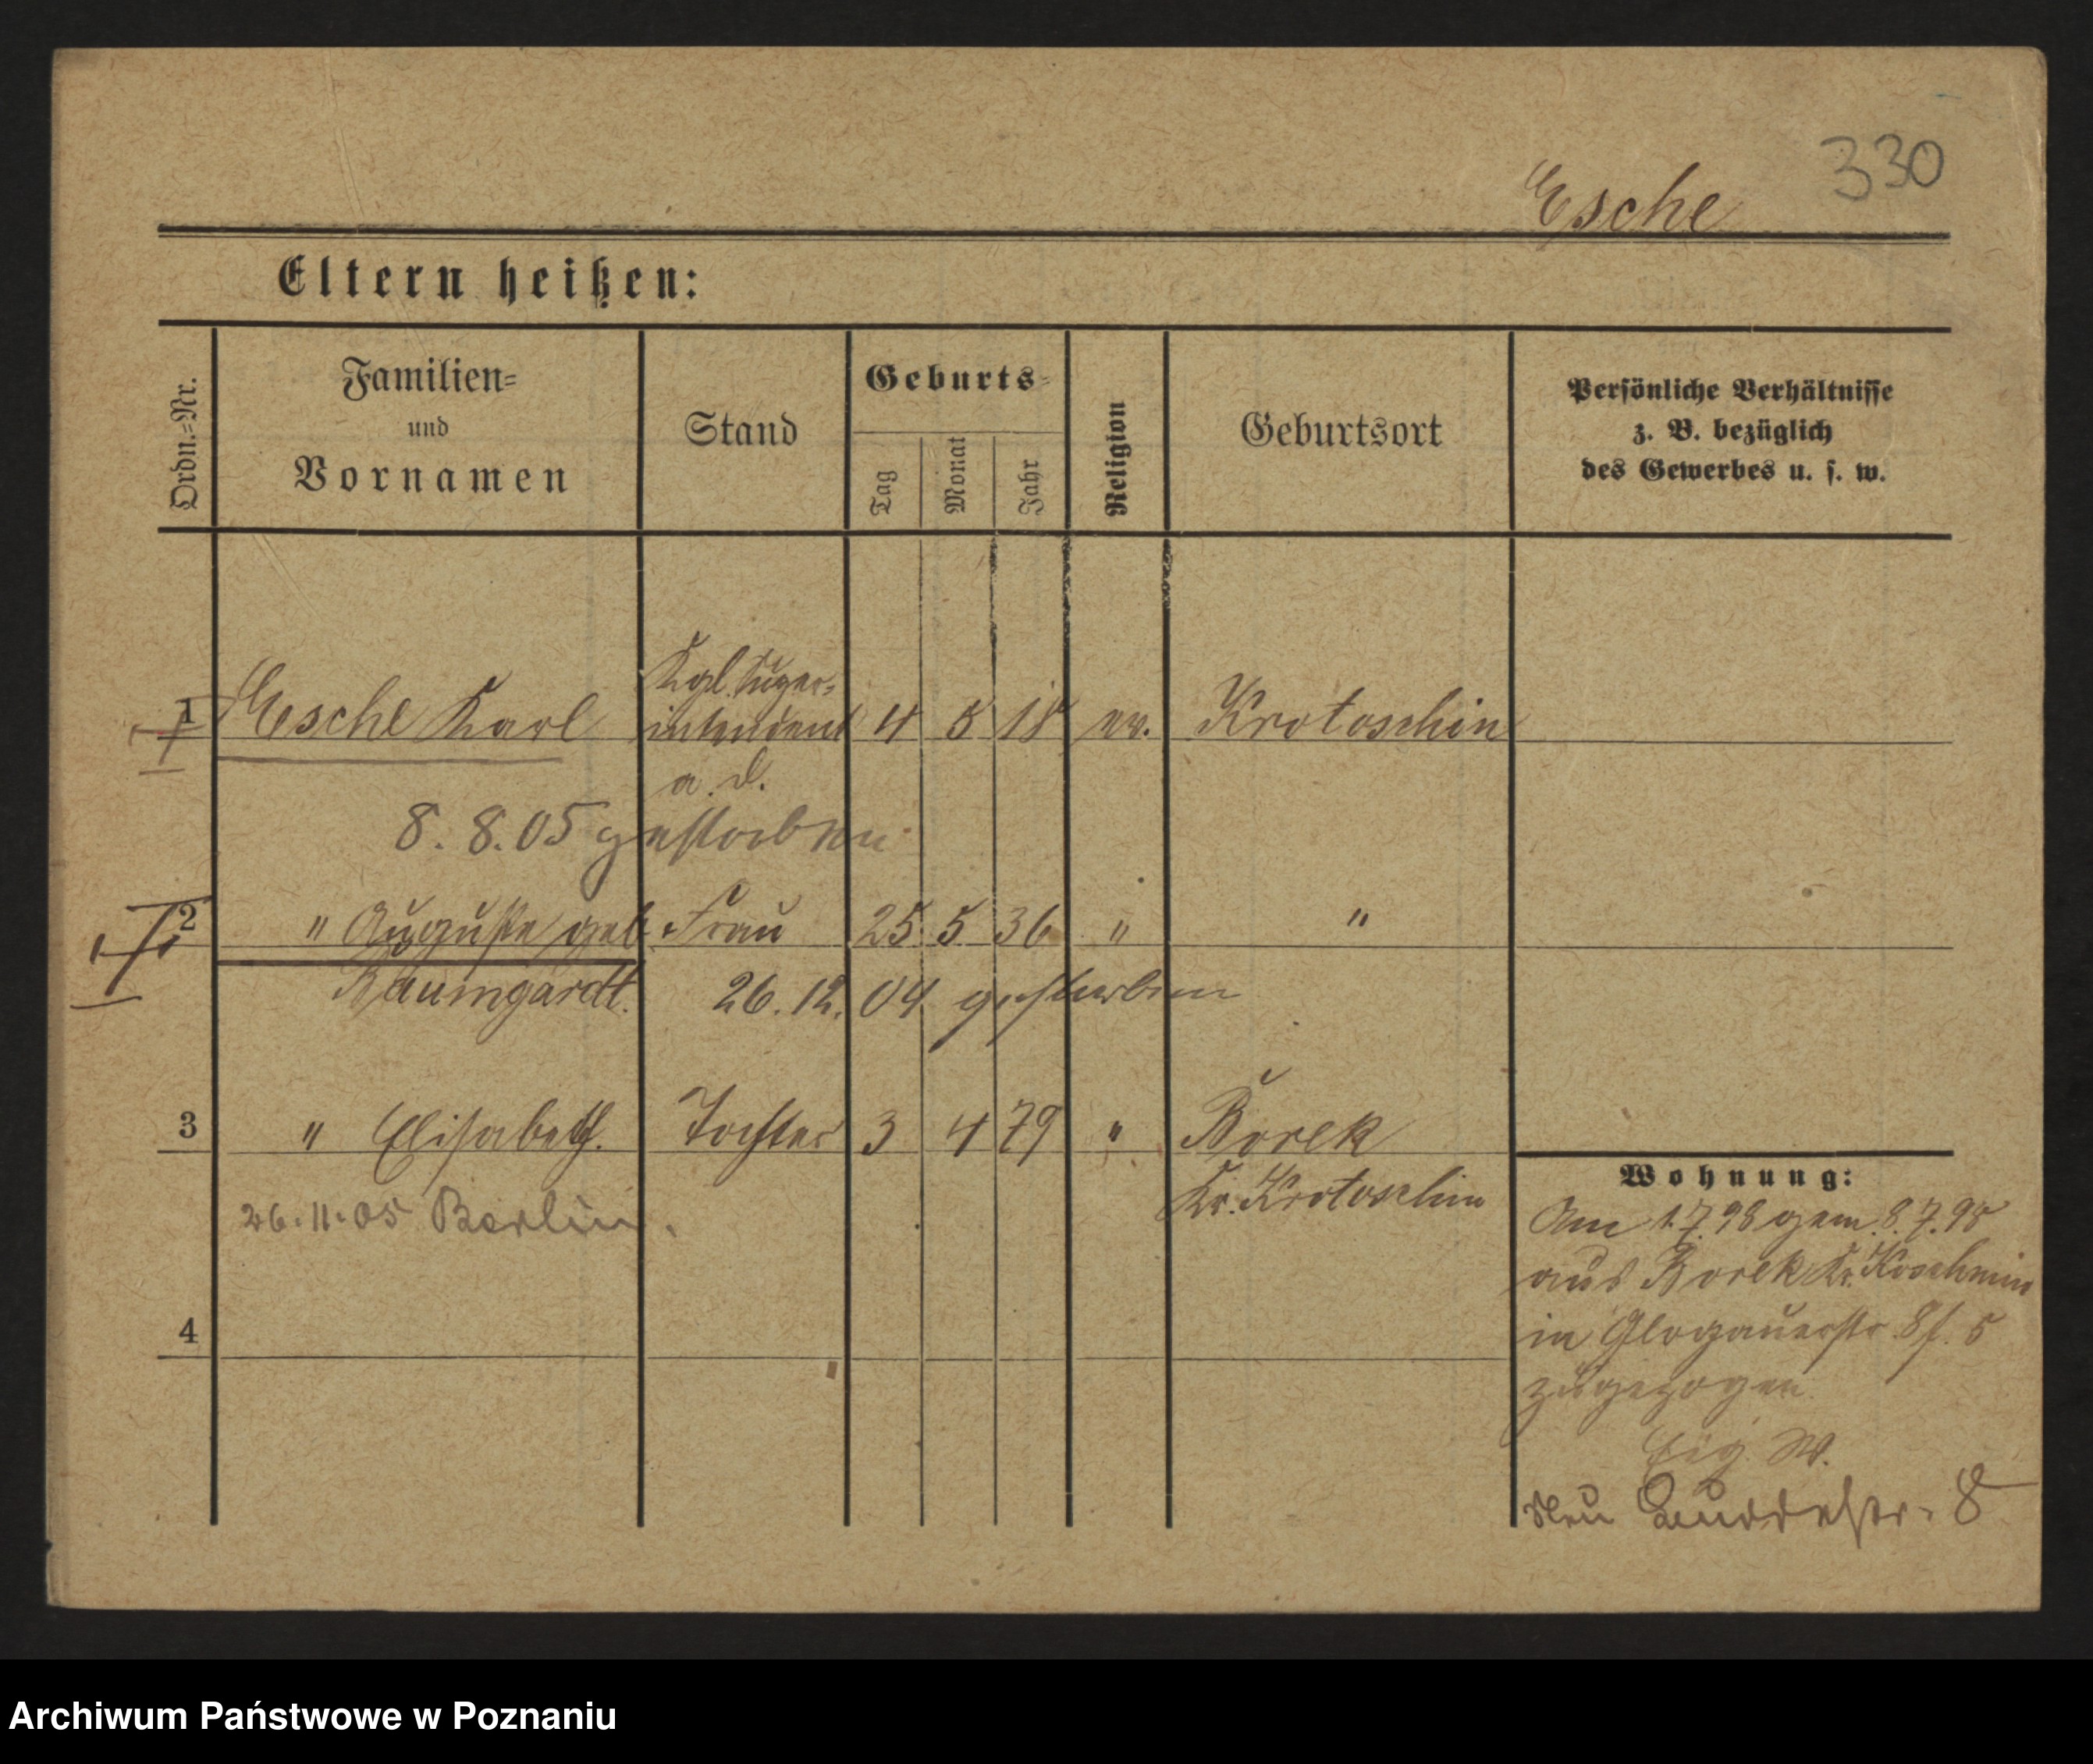 330
Esche
Eltern heißen:
Ordn.=Nr.
Familien=
und
Vornamen
Stand
Geburts=
Tag
Monat
Jahr
Religion
Geburtsort
Persönliche Verhältnisse
z. B. bezüglich
des Gewerbes u. s. w.
1 Esche Karl Kgl. Super-
intendent 4 5 18 ev. Krotoschin
a. D.
8. 8. 05 gestorben
2 " Auguste geb. Frau 25 5 36 " "
Baumgardt. 26. 12. 04 gestorben
3 " Elisabeth. Tochter 3 4 79 " Borek
Kr. Krotoschin
26. 11. 05 Berlin.
4
Wohnung:
Am 1.7.98 gem. 8.7.98
aus Borek Kr. Koschmin
in Glogauerstr. 8 f. 5
zugezogen.
Eig. W.
Neu
Archiwum Państwowe w Poznaniu